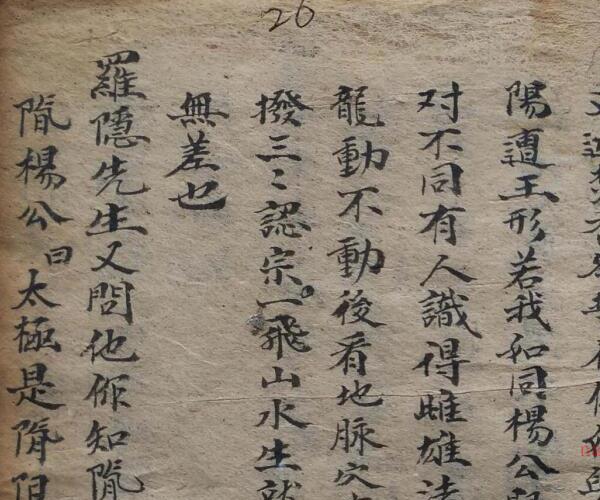 26
陽遭王形若我如同楊公
对不同有人識得雌雄法
龍動不動後看地脉穴
撥三〻認宗一飛山水生就
無差也
羅隠先生又問他你知隂
隂楊公曰太極是隂